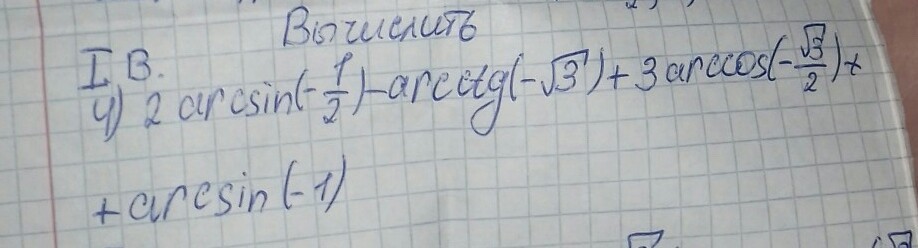 Вычислить
I В.
4) 2 arcsin(-1/2) - arcctg(-√3) + 3 arccos(-√3/2) +
+ arcsin(-1)